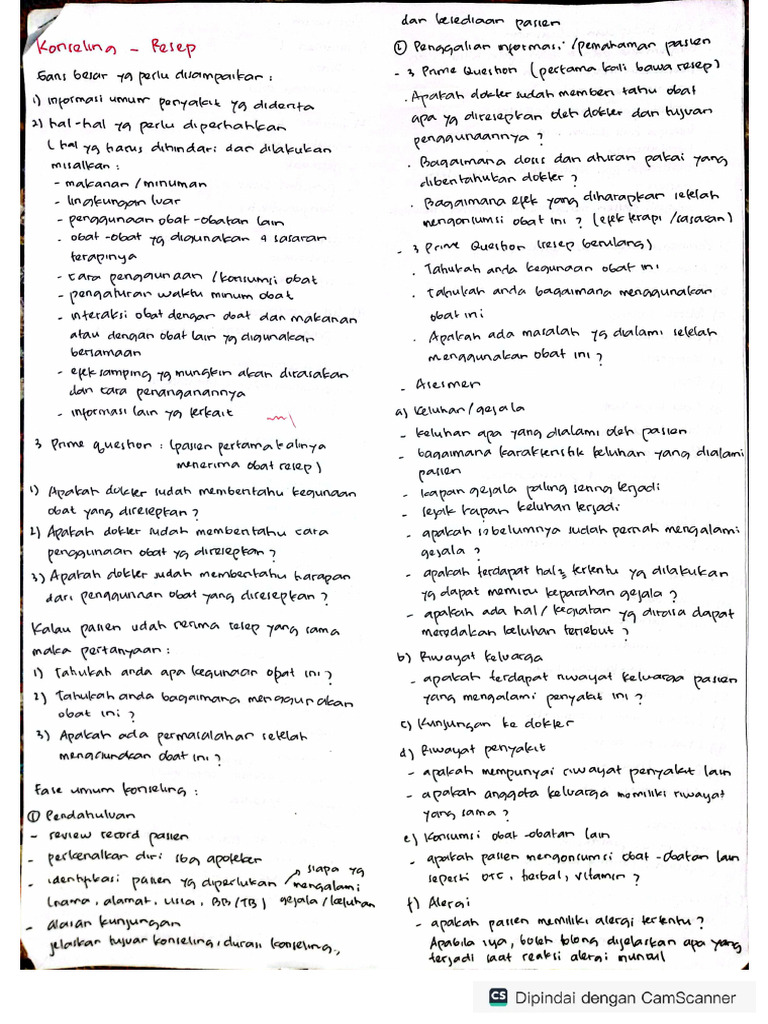 Konseling - Resep
Garis besar yg perlu disampaikan :
1) informasi umum penyakit yg diderita
2) hal-hal yg perlu diperhatikan
( hal yg harus dihindari dan dilakukan
misalkan :
- makanan / minuman
- lingkungan luar
- penggunaan obat-obatan lain
- obat-obat yg digunakan & sasaran
terapinya
- cara penggunaan / konsumsi obat
- pengaturan waktu minum obat
- interaksi obat dengan obat dan makanan
atau dengan obat lain yg digunakan
bersamaan
- efek samping yg mungkin akan dirasakan
dan cara penanganannya
- informasi lain yg terkait
3 Prime question : (pasien pertama kalinya
menerima obat resep)
1) Apakah dokter sudah memberitahu kegunaan
obat yang diresepkan ?
2) Apakah dokter sudah memberitahu cara
penggunaan obat yg diresepkan ?
3) Apakah dokter sudah memberitahu harapan
dari penggunaan obat yang diresepkan ?
Kalau pasien udah nerima resep yang sama
maka pertanyaan :
1) Tahukah anda apa kegunaan obat ini ?
2) Tahukah anda bagaimana menggunakan
obat ini ?
3) Apakah ada permasalahan setelah
mengkonsumsi obat ini ?
Fase umum konseling :
① Pendahuluan
- review record pasien
- perkenalkan diri sbg apoteker
- identifikasi pasien yg diperlukan → siapa yg mengalami gejala / keluhan
(nama, alamat, usia, BB/TB)
- alasan kunjungan
jelaskan tujuan konseling, durasi konseling,
dan kesediaan pasien
② Penggalian informasi / pemahaman pasien
- 3 Prime Question (pertama kali bawa resep)
. Apakah dokter sudah memberi tahu obat
apa yg diresepkan oleh dokter dan tujuan
penggunaannya ?
. Bagaimana dosis dan aturan pakai yang
diberitahukan dokter ?
. Bagaimana efek yang diharapkan setelah
mengonsumsi obat ini ? (efek terapi / sasaran)
- 3 Prime Question (resep berulang)
. Tahukah anda kegunaan obat ini
. Tahukah anda bagaimana menggunakan
obat ini
. Apakah ada masalah yg dialami setelah
menggunakan obat ini ?
- Asesmen
a) Keluhan / gejala
- keluhan apa yang dialami oleh pasien
- bagaimana karakteristik keluhan yang dialami
pasien
- kapan gejala paling sering terjadi
- sejak kapan keluhan terjadi
- apakah sebelumnya sudah pernah mengalami
gejala ?
- apakah terdapat hal2 tertentu yg dilakukan
yg dapat memicu keparahan gejala ?
- apakah ada hal / kegiatan yg dirasa dapat
meredakan keluhan tersebut ?
b) Riwayat keluarga
- apakah terdapat riwayat keluarga pasien
yang mengalami penyakit ini ?
c) Kunjungan ke dokter
d) Riwayat penyakit
- apakah mempunyai riwayat penyakit lain
- apakah anggota keluarga memiliki riwayat
yang sama ?
e) Konsumsi obat-obatan lain
- apakah pasien mengonsumsi obat-obatan lain
seperti OTC, herbal, vitamin ?
f) Alergi
- apakah pasien memiliki alergi tertentu ?
Apabila iya, boleh tolong dijelaskan apa yang
terjadi saat reaksi alergi muncul
CS Dipindai dengan CamScanner